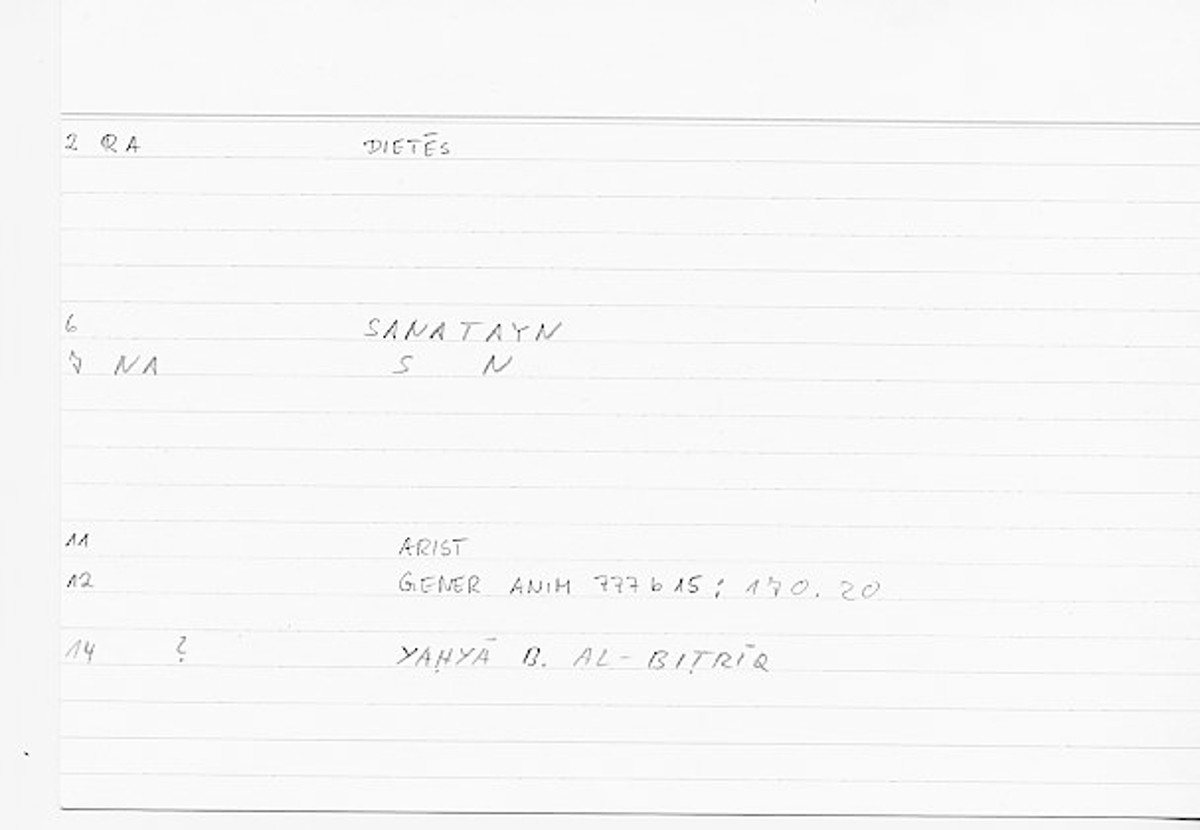 2 QA DIETĒS
6 SANATAYN
7 NA S N
11 ARIST
12 GENER ANIM 777 b 15 ; 170. 20
14 ? YAḤYĀ B. AL-BIṬRĪQ